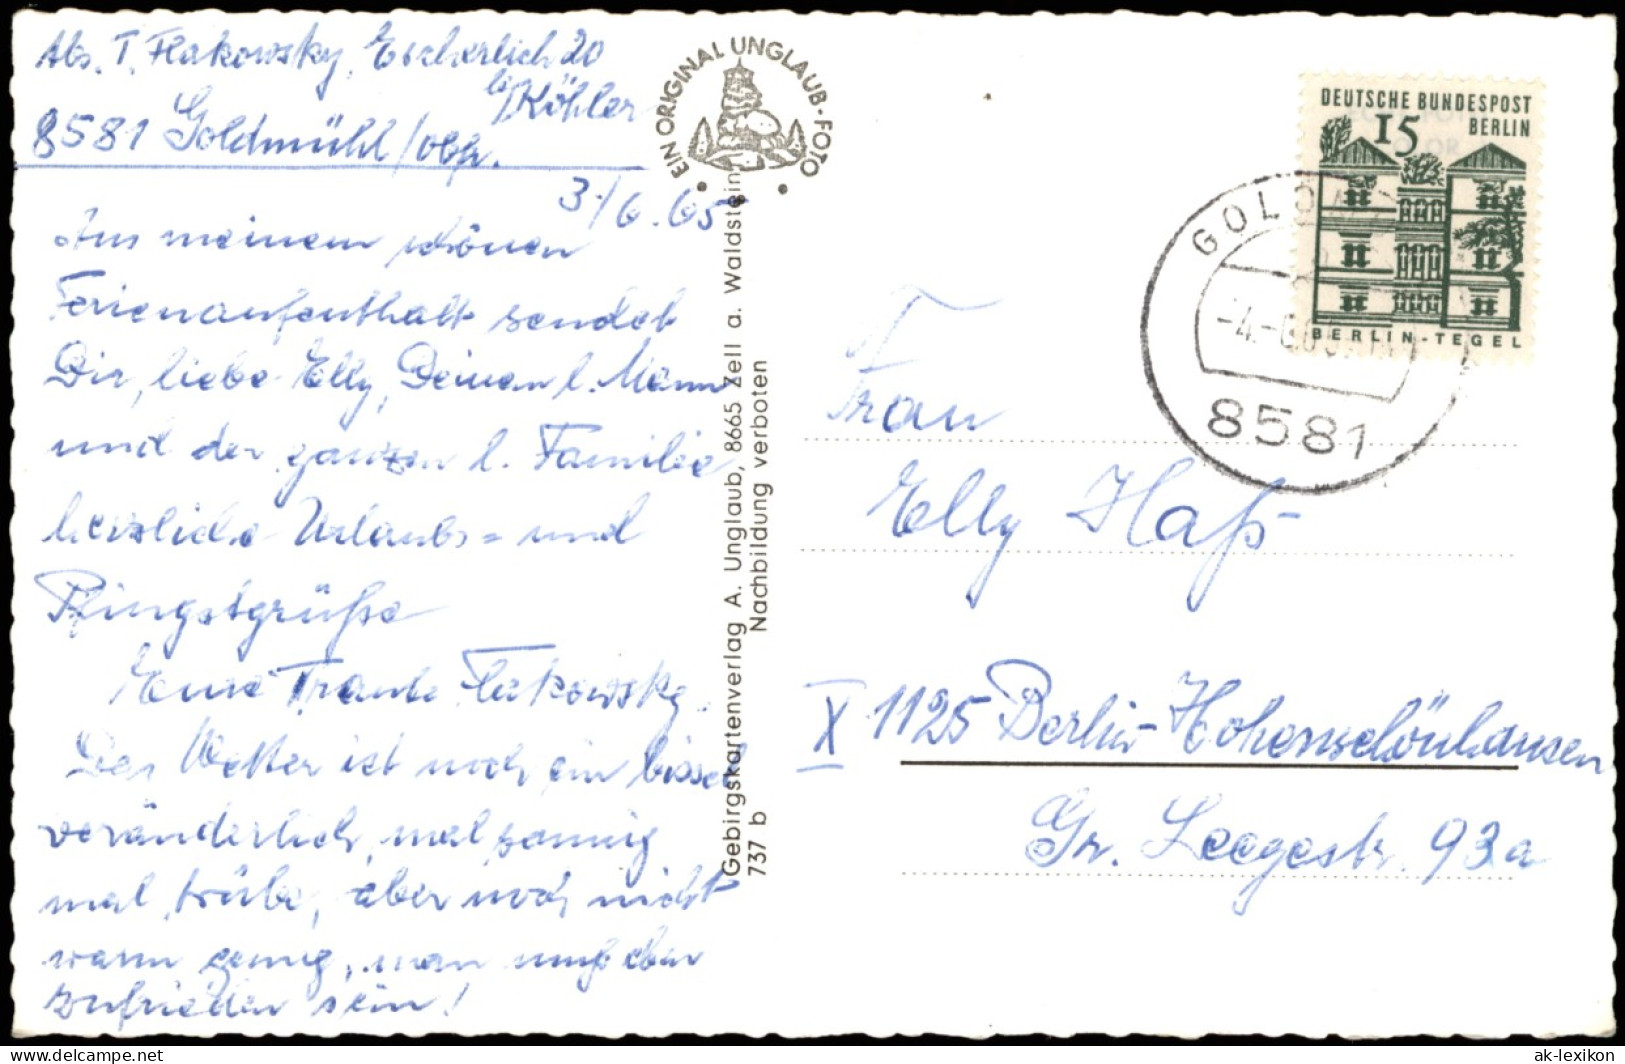 Abs. T. Flakowsky, Escherlich 20
b/Köhler
8581 Goldmühl/Obfr.
3./6.65
Aus meinem schönen
Ferienaufenthalt sendet
Dir, liebe Elly, Deinen l. Mann
und der ganzen l. Familie
herzliche Urlaubs- und
Pfingstgrüße
Eure Traute Flakowsky.
Das Wetter ist noch ein bissel
veränderlich, mal sonnig
mal trübe, aber noch nicht
warm genug, man muß eben
zufrieden sein!
EIN ORIGINAL UNGLAUB-FOTO
Gebirgskartenverlag A. Unglaub, 8665 Zell a. Waldstein
Nachbildung verboten
737 b
DEUTSCHE BUNDESPOST
15 BERLIN
BERLIN-TEGEL
GOLD
-4.-6.65
8581
Frau
Elly Haß
X 1125 Berlin-Hohenschönhausen
Gr. Leegestr. 93a
ak-lexikon
the-collector's-marketplace DELCAMPE.net